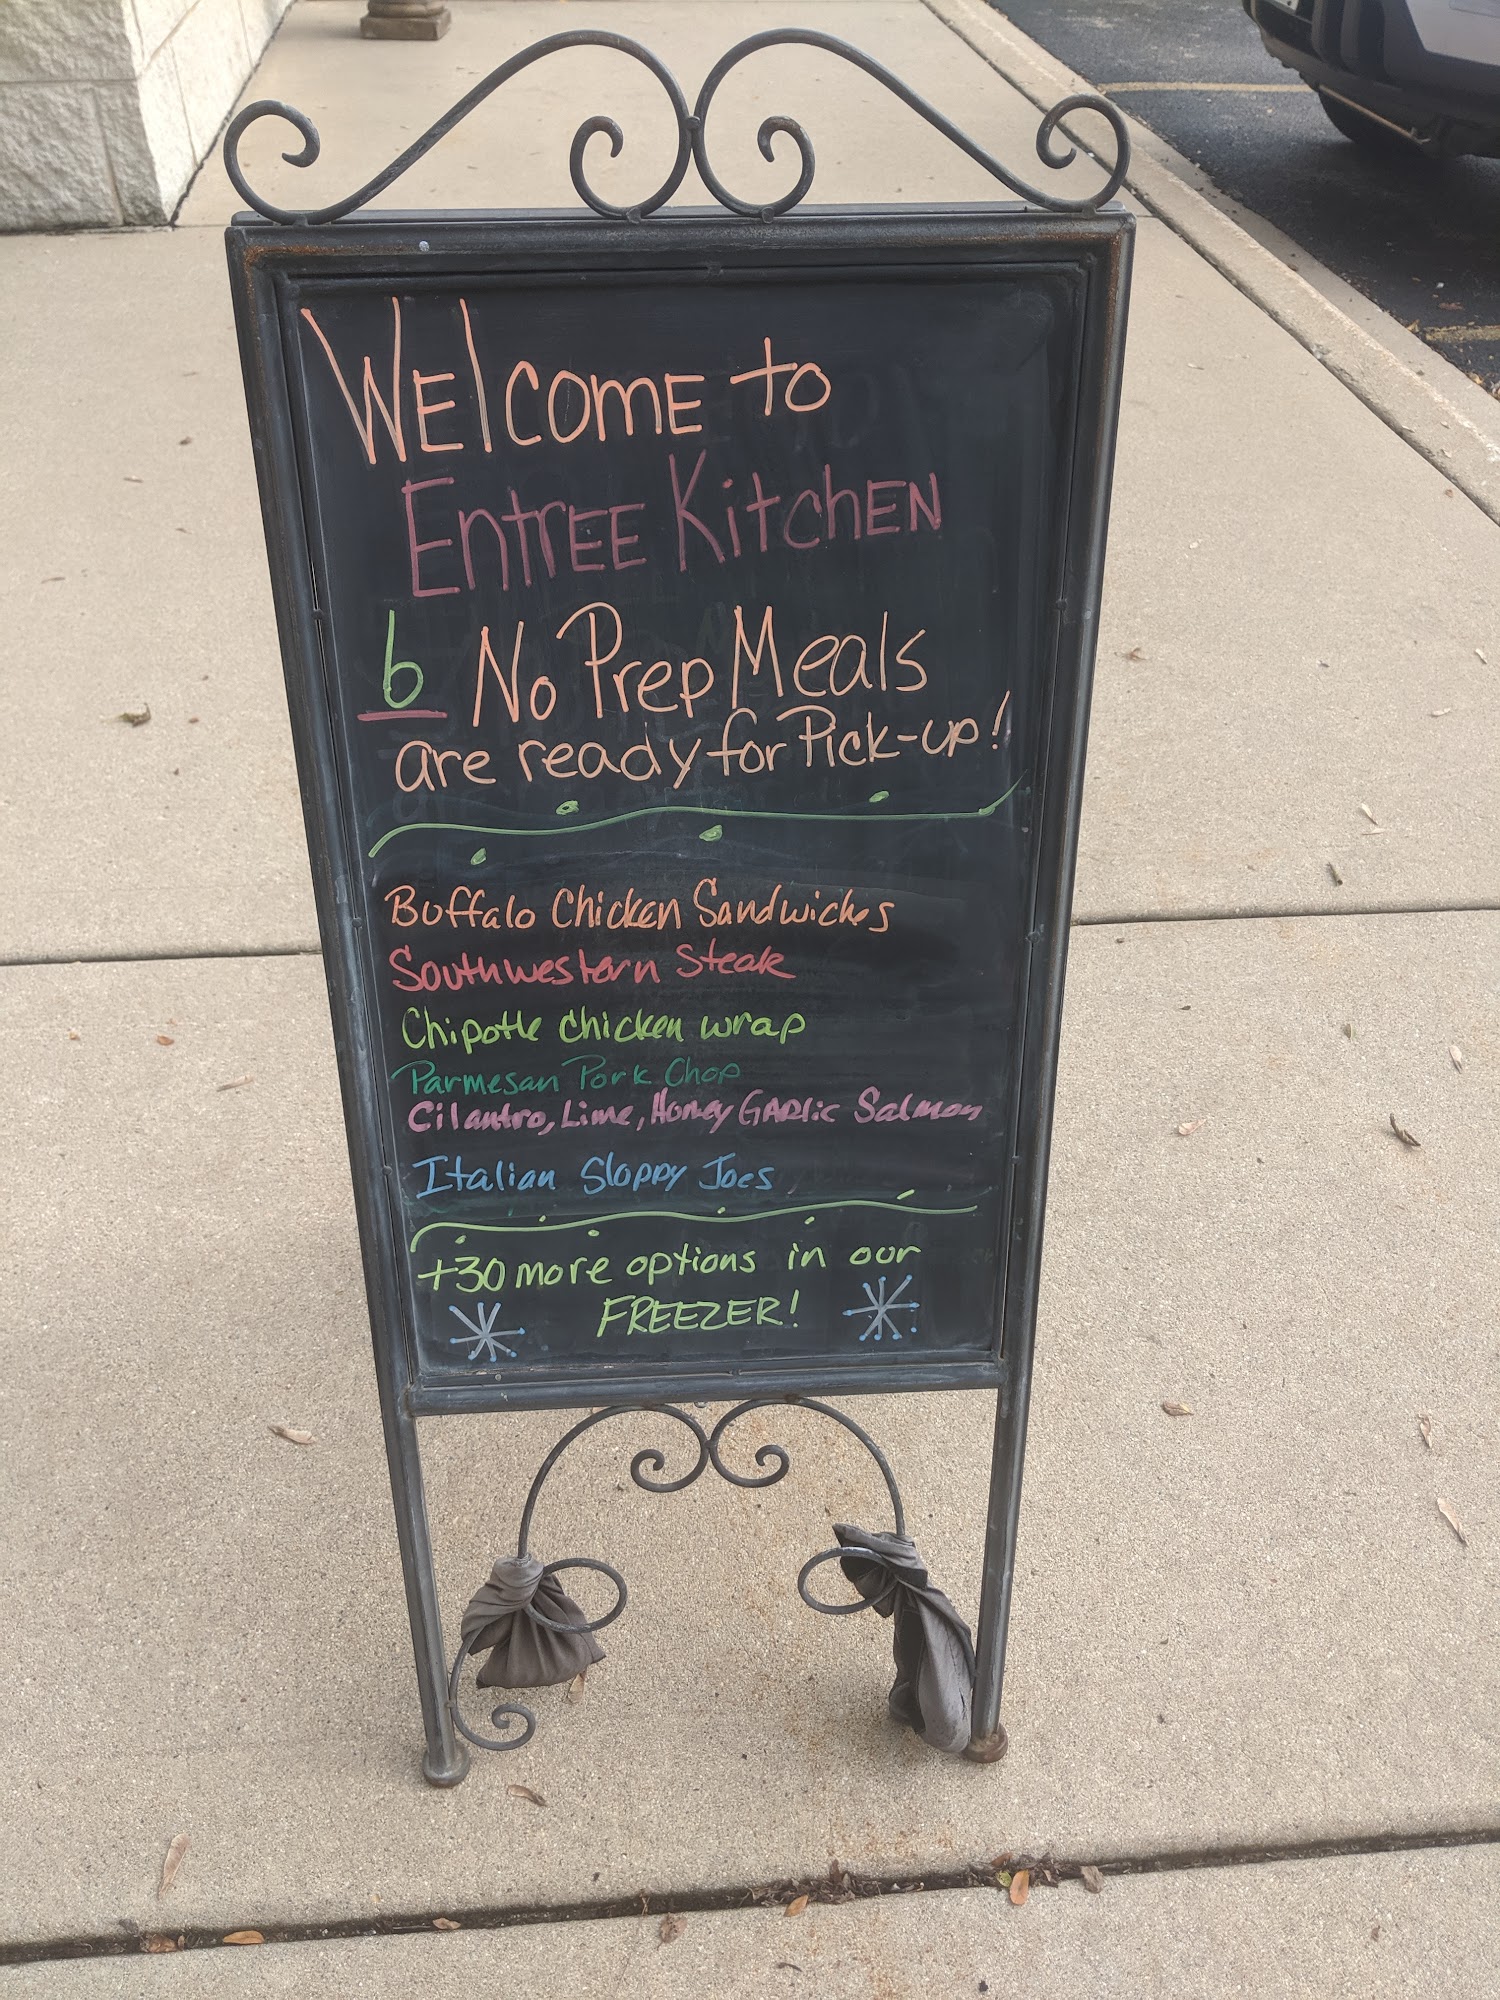 Welcome to
Entree Kitchen
6 No Prep Meals
are ready for Pick-up!
Buffalo Chicken Sandwiches
Southwestern Steak
Chipotle chicken wrap
Parmesan Pork Chop
Cilantro, Lime, Honey Garlic Salmon
Italian Sloppy Joes
+30 more options in our
FREEZER!